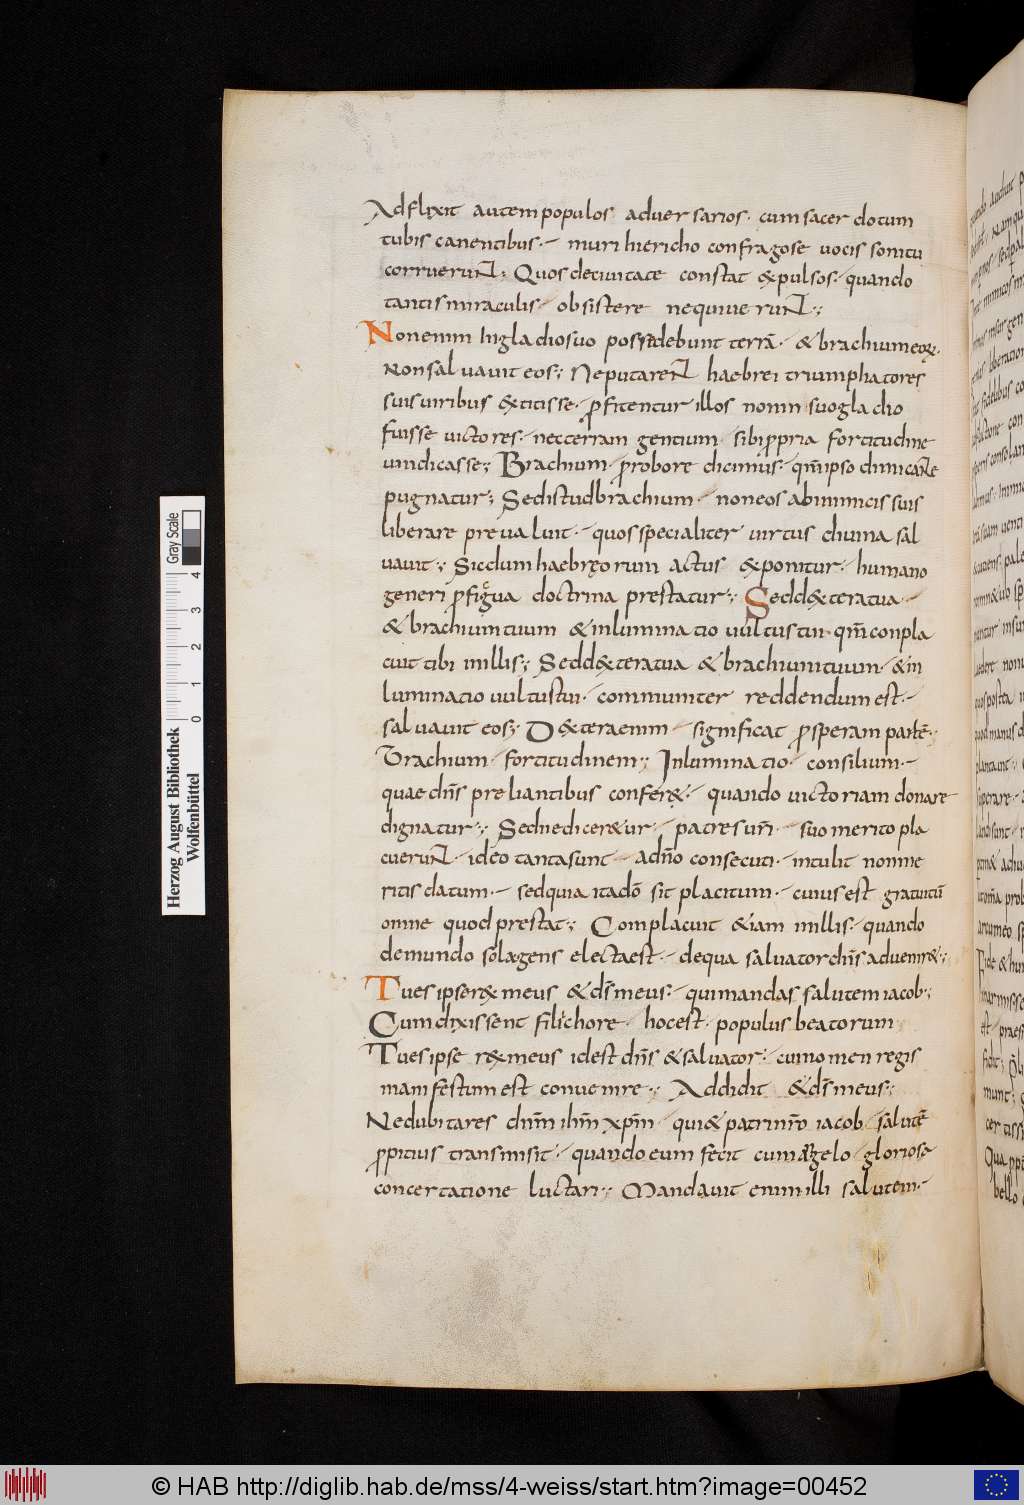 Adflixit autem populos aduersarios· cum sacerdotum
tubis canentibus·- muri hiericho confragose uocis sonitu
corruerunt; Quos deciuitate constat expulsos· quando
tantis miraculis· obsistere nequiuerunt;
Non enim In gladio suo possidebunt terrā· & brachium eorꝝ·
Non saluauit eos; Ne putarent haebrei triumphatores
suis uiribus extitisse· ꝓfitentur illos non in suo gladio
fuisse uictores· nec terram gentium· sibi ꝓpria fortitudine
uindicasse; Brachium· ꝓ robore dicimus· qm̄ ipso dimicante
pugnatur; Sed istud brachium· non eos ab inimicis suis
liberare preualuit· quos specialiter uirtus diuina sal
uauit; Sic dum haebręorum actus exponitur· humano
generi ꝓfigua doctrina prestatur; Sed dextera tua·
& brachium tuum & inluminatio uultus tui qm̄ conpla
cuit tibi in illis; Sed dextera tua & brachium tuum· & in
luminatio uultus tui· communiter reddendum est·
saluauit eos; Dextera enim· significat ꝓsperam partē;
Brachium· fortitudinem; Inluminatio· consilium·
quae dn̄s preliantibus confer&· quando uictoriam donare
dignatur; Sed ne dicer&ur· patres ur̄i· suo merito pla
cuerunt· ideo tanta sunt· a dn̄o consecuti· intulit non me
ritis datum· sed quia ita dō sit placitum· cuius est gratuitū
omne quod prestat; Complacuit &iam in illis· quando
de mundo sola gens electa est· de qua saluator dn̄s adueniret;
Tu es ipse rex meus & ds̄ meus· qui mandas salutem iacob;
Cum dixissent filii chore· hoc est· populus beatorum
Tu es ipse rex meus id est dn̄s & saluator· cui nomen regis
manifestum est conuenire; Addidit & ds̄ meus;
Ne dubitares dn̄m ih̄m xp̄m· qui & patri nr̄o iacob salutē
ꝓpitius transmisit· quando eum fecit cum angelo gloriosa
concertatione luctari; Mandauit enim illi salutem·
Herzog August Bibliothek
Wolfenbüttel
0 1 2 3 4
Gray Scale
© HAB http://diglib.hab.de/mss/4-weiss/start.htm?image=00452